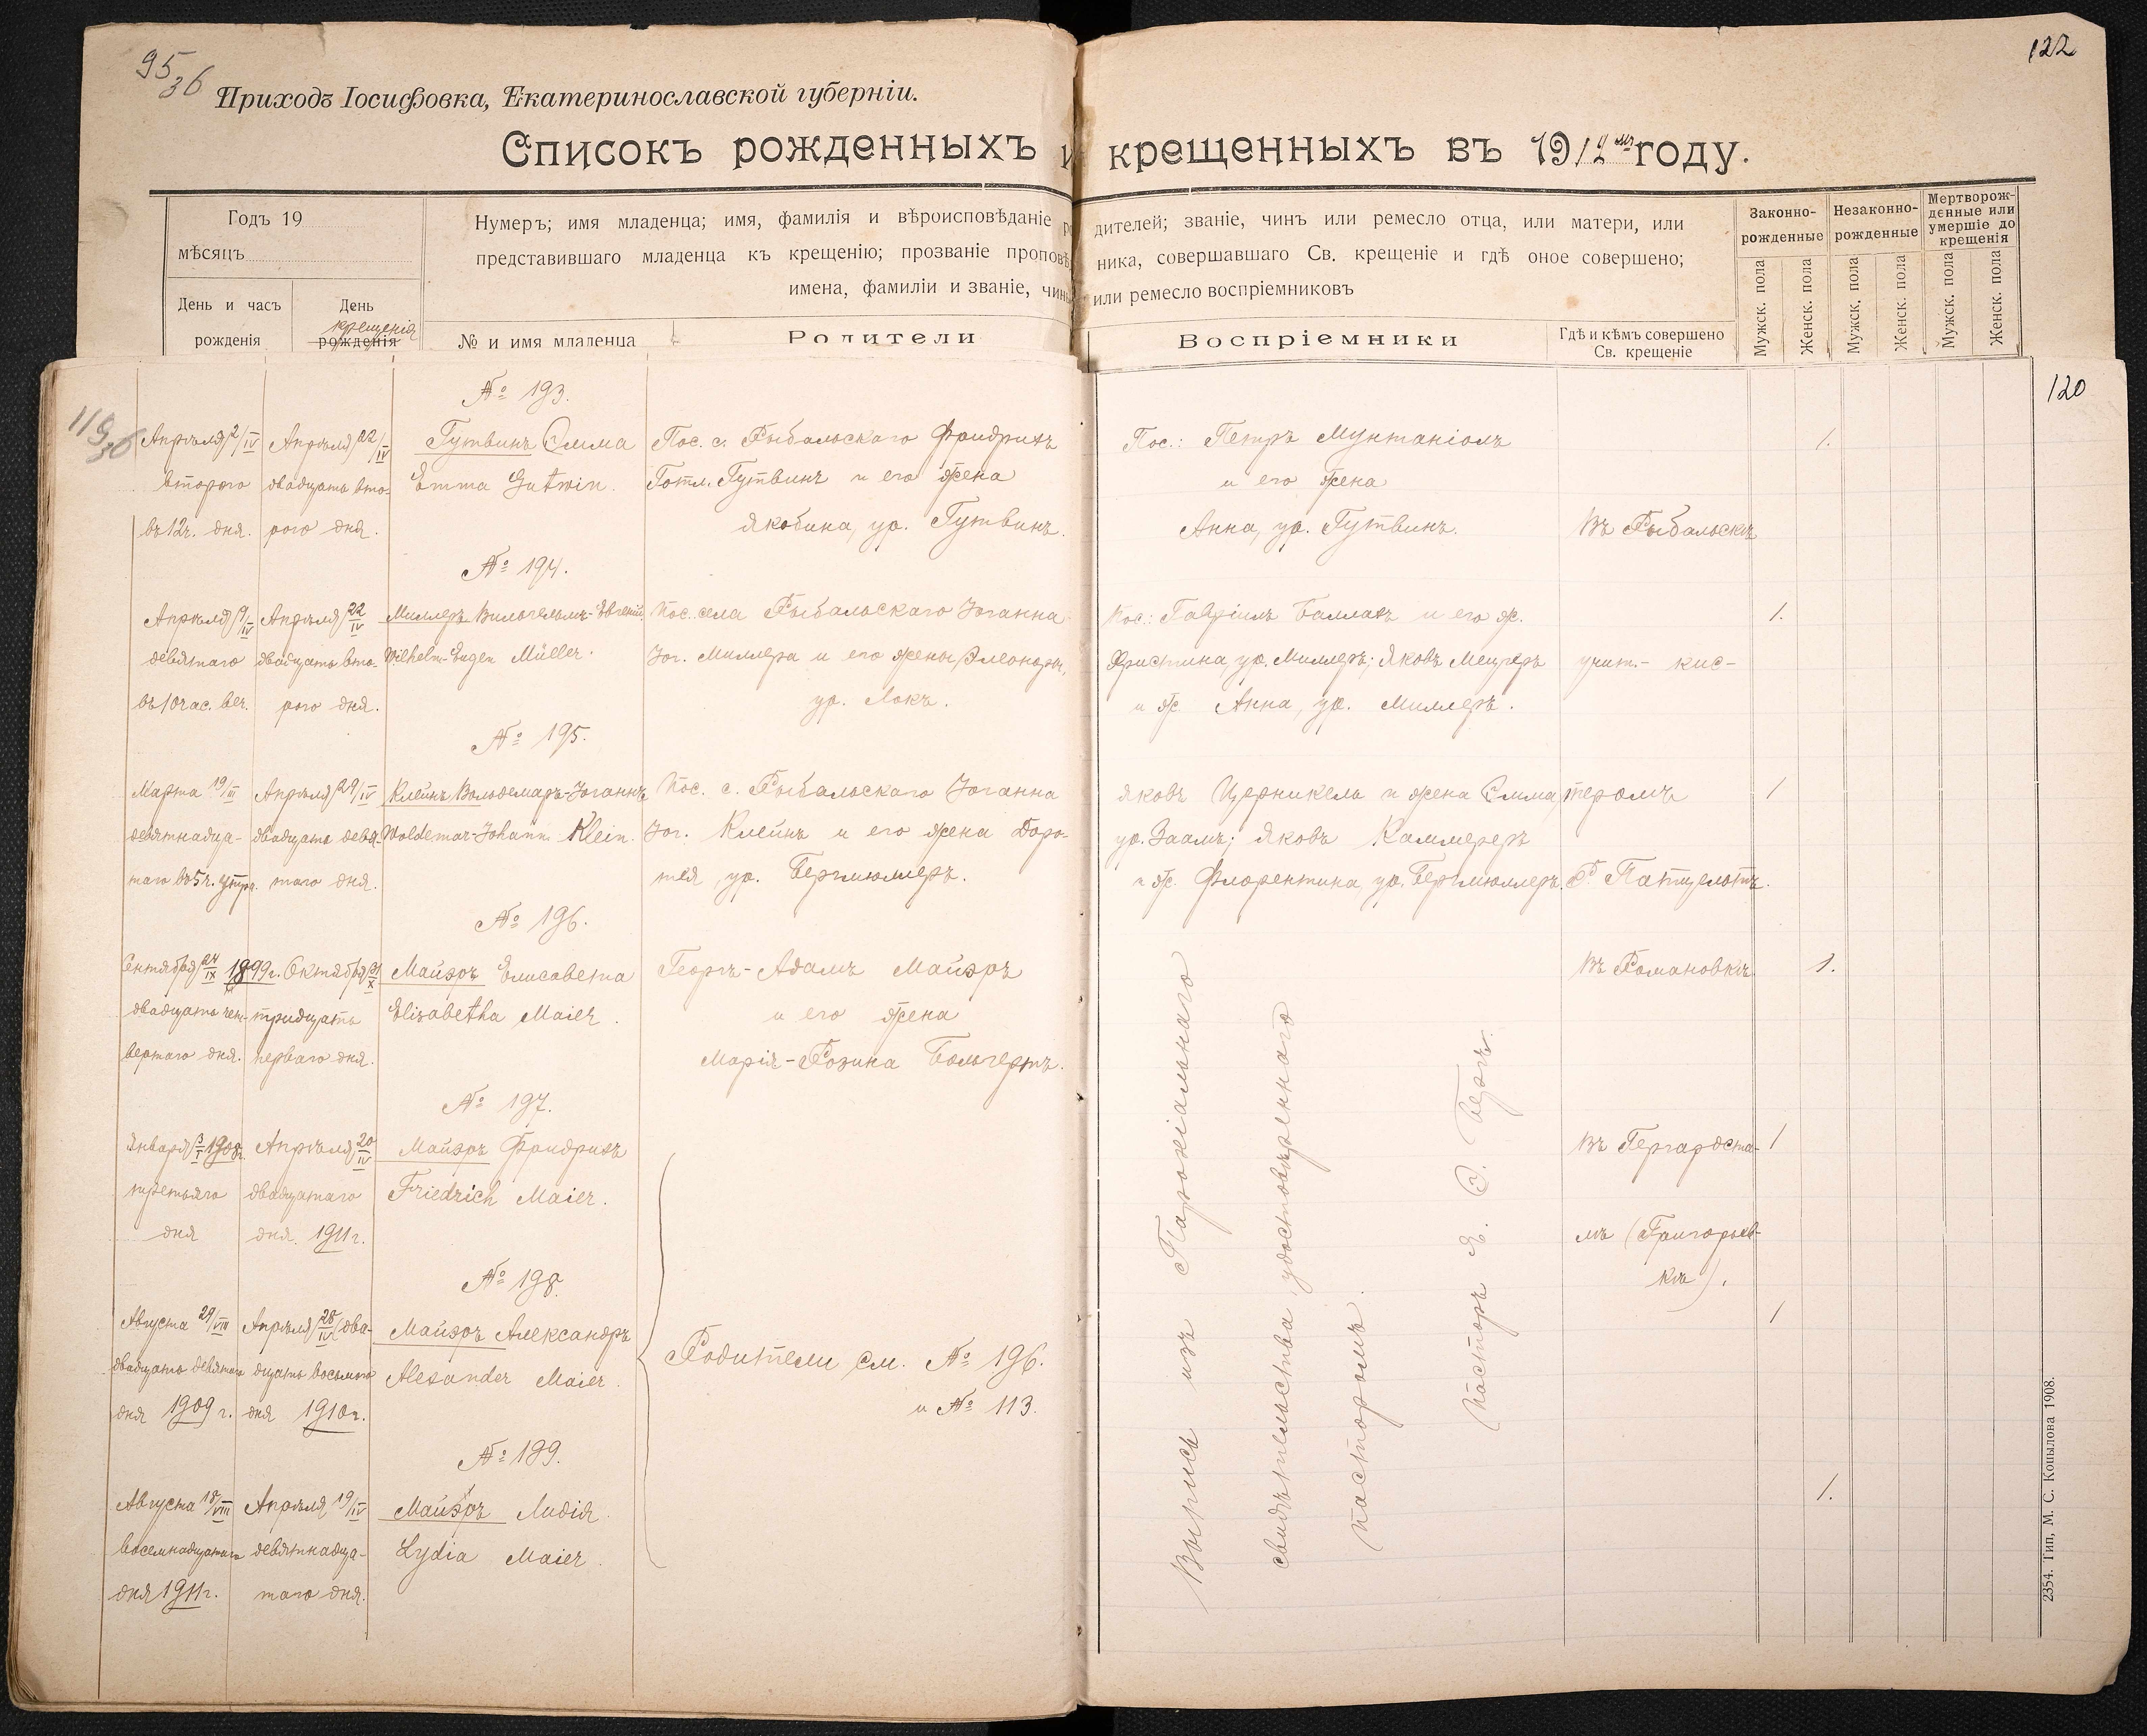 95
36
122
Приходъ Іосифовка, Екатеринославской губерніи.
Списокъ рожденныхъ и крещенныхъ въ 1912 году.
Годъ 19
мѣсяцъ
День и часъ
рожденія
День
крещенія
рожденія
Нумеръ; имя младенца; имя, фамилія и вѣроисповѣданіе родителей; званіе, чинъ или ремесло отца, или матери, или
представившаго младенца къ крещенію; прозваніе проповѣдника, совершавшаго Св. крещеніе и гдѣ оное совершено;
имена, фамиліи и званіе, чинъ или ремесло воспріемниковъ
№ и имя младенца
Родители
Воспріемники
Гдѣ и кѣмъ совершено
Св. крещеніе
Законно-
рожденные
Незаконно-
рожденные
Мертворож-
денные или
умершіе до
крещенія
Мужск. пола
Женск. пола
Мужск. пола
Женск. пола
Мужск. пола
Женск. пола
120
119
36
№ 193.
Апрѣля 2/IV Апрѣля 22/IV Гутвинъ Эмма Пос. с. Рыбальскаго Фридрихъ Пос.: Петръ Мунтаніолъ 1.
второго двадцать вто- Emma Gutwin. Готл. Гутвинъ и его жена и его жена
въ 12ч. дня. рого дня. Якобина, ур. Гутвинъ. Анна, ур. Гутвинъ. Въ Рыбальскѣ
№ 194.
Апрѣля 9/IV Апрѣля 22/IV Миллеръ Вильгельмъ-Евгеній. Пос. села Рыбальскаго Іоганна Пос.: Гавріилъ Баллахъ и его ж. 1.
девятаго двадцать вто- Wilhelm-Eugen Müller. Іог. Миллера и его жены Элеоноры, Христина, ур. Миллеръ; Яковъ Мецгеръ учит.- кис-
въ 10 час. веч. рого дня. ур. Локъ. и ж. Анна, ур. Миллеръ.
№ 195.
Марта 19/III Апрѣля 29/IV Клейнъ Вольдемаръ-Іоганнъ Пос. с. Рыбальскаго Іоганна Яковъ Церникель и жена Эмма, теромъ 1
девятнадца- двадцать девя- Woldemar-Johann Klein. Іог. Клейнъ и его жена Доро- ур. Заамъ; Яковъ Каммереръ
таго въ 5ч. утра. таго дня. тея, ур. Бергмюллеръ. и ж. Флорентина, ур. Бергмюллеръ. Патцельтъ.
№ 196.
Сентября 24/IX 1899г. Октября 31/X Майэръ Елисавета Георгъ-Адамъ Майэръ Въ Романовкѣ 1.
двадцать чет- тридцать Elisabetha Maier. и его жена
вертаго дня. перваго дня. Марія-Розина Больгертъ.
№ 197.
Января 3/I 1908г. Апрѣля 20/IV Майэръ Фридрихъ Въ Гергардста- 1
третьяго двадцатаго Friedrich Maier.
дня дня. 1911г. лѣ (Григорьев-
кѣ).
№ 198.
Августа 29/VIII Апрѣля 28/IV (два- Майэръ Александръ 1
двадцать девятаго дцать восьмого Alexander Maier. Родители см. № 196.
дня 1909 г. дня 1910г. и № 113.
№ 199.
Августа 18/VIII Апрѣля 19/IV Майэръ Лидія. 1.
восемнадцатаго девятнадца- Lydia Maier.
дня 1911г. таго дня.
Выпись изъ Парохіальнаго
свидѣтельства, удостовѣреннаго
пасторомъ.
Пасторъ Я. Э. Бергъ.
2354. Тип, М. С. Копылова 1908.